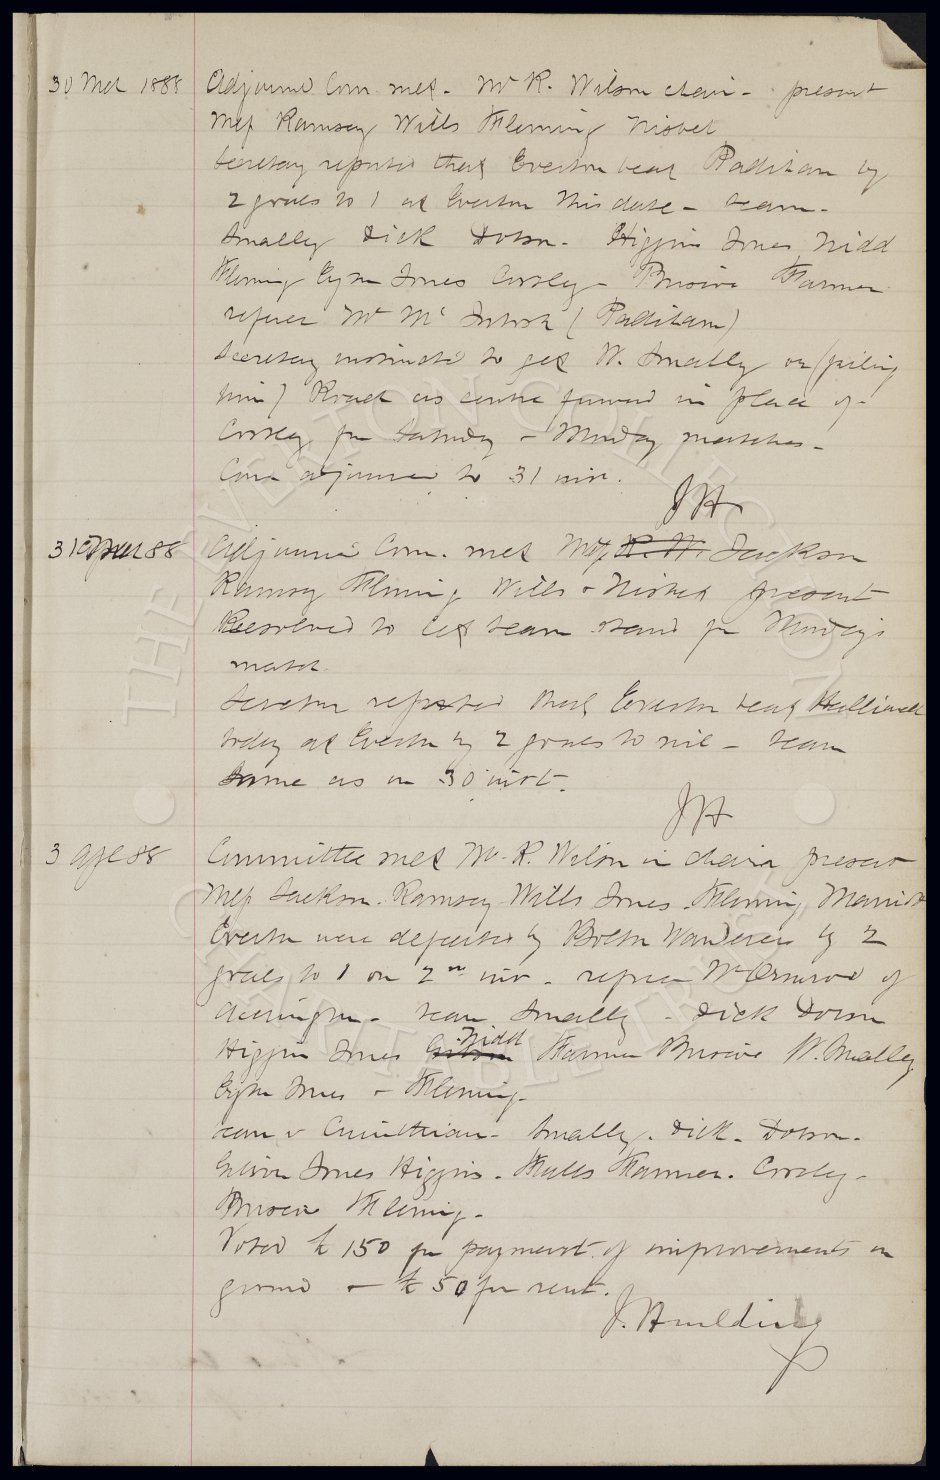 30 Mch 1888 Adjourned Com. met - Mr R. Wilson chair - present
Mess Ramsay Wills Fleming Nisbet
Secretary reported that Everton beat Padiham by
2 goals to 1 at Everton this date - team -
Smalley Dick Dobson - Higgins Jones Nidd
Fleming Izon Jones Corsley - Briscoe Farmer
referee Mr Mc Intosh (Padiham)
Secretary instructed to get W. Smalley or (failing
him) Roach as centre forward in place of
Corsley for Saturday & Monday matches -
Com adjourned to 31 inst.
JH
31 88 Adjourned Com. met Mess R. W. Jackson
Ramsay Fleming Wills & Nisbet present
Resolved to let team stand for Monday's
match
reported that Everton beat Halliwell
today at Everton by 2 goals to nil - team
same as on 30 inst.
JH
3 Apl 88 Committee met Mr R. Wilson in chair present
Mess Jackson. Ramsay Wills Jones. Fleming
Everton were defeated by Bolton Wanderers by 2
goals to 1 on 2nd inst. referee Mr Ormerod of
Accrington - team Smalley - Dick Dobson
Higgins Jones Gibson Nidd Farmer Briscoe W. Smalley
Izon Jones & Fleming -
team v Corinthian - Smalley. Dick. Dobson.
Gibson Jones Higgins. Farmer. Corsley -
Briscoe Fleming -
Voted £ 150 for payment of improvements on
ground & £ 50 for rent.
J. Houlding
THE EVERTON COLLECTION
CHARITABLE TRUST